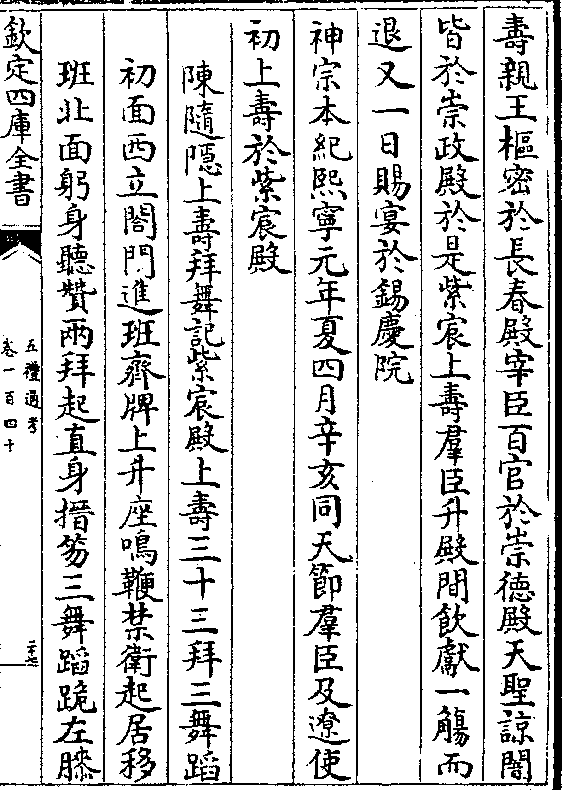 壽親王樞密於長春殿宰臣百官於崇德殿天聖諒闇
皆於崇政殿於是紫宸上壽羣臣升殿間飲獻一觴而
退又一日賜宴於錫慶院
神宗本紀熙寧元年夏四月辛亥同天節羣臣及遼使
初上壽於紫宸殿
陳隨隱上壽拜舞記紫宸殿上壽三十三拜三舞蹈
初面西立閤門進班齊牌上升座鳴鞭禁衛起居移
班北面躬身聽贊兩拜起直身搢笏三舞蹈跪左膝
欽定四庫全書
五禮通考
卷一百四十